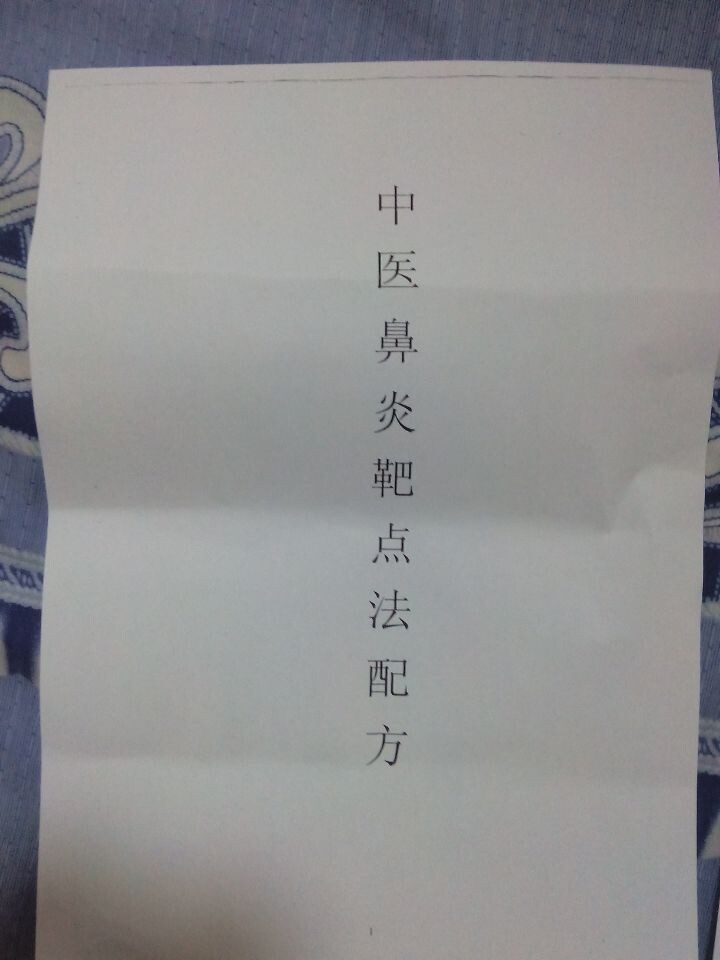 中医鼻炎靶点法配方
1